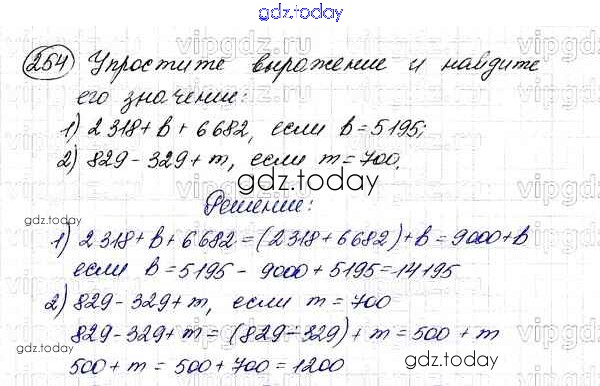 gdz.today
254 Упростите выражение и найдите
его значение:
1) 2318+b+6682, если b=5195;
2) 829-329+m, если m=700.
gdz.today
Решение:
gdz.today
1) 2318+b+6682=(2318+6682)+b=9000+b
если b=5195 - 9000+5195=14195
2) 829-329+m, если m=700
829-329+m=(829-329)+m=500+m
gdz.today
500+m=500+700=1200
gdz.today